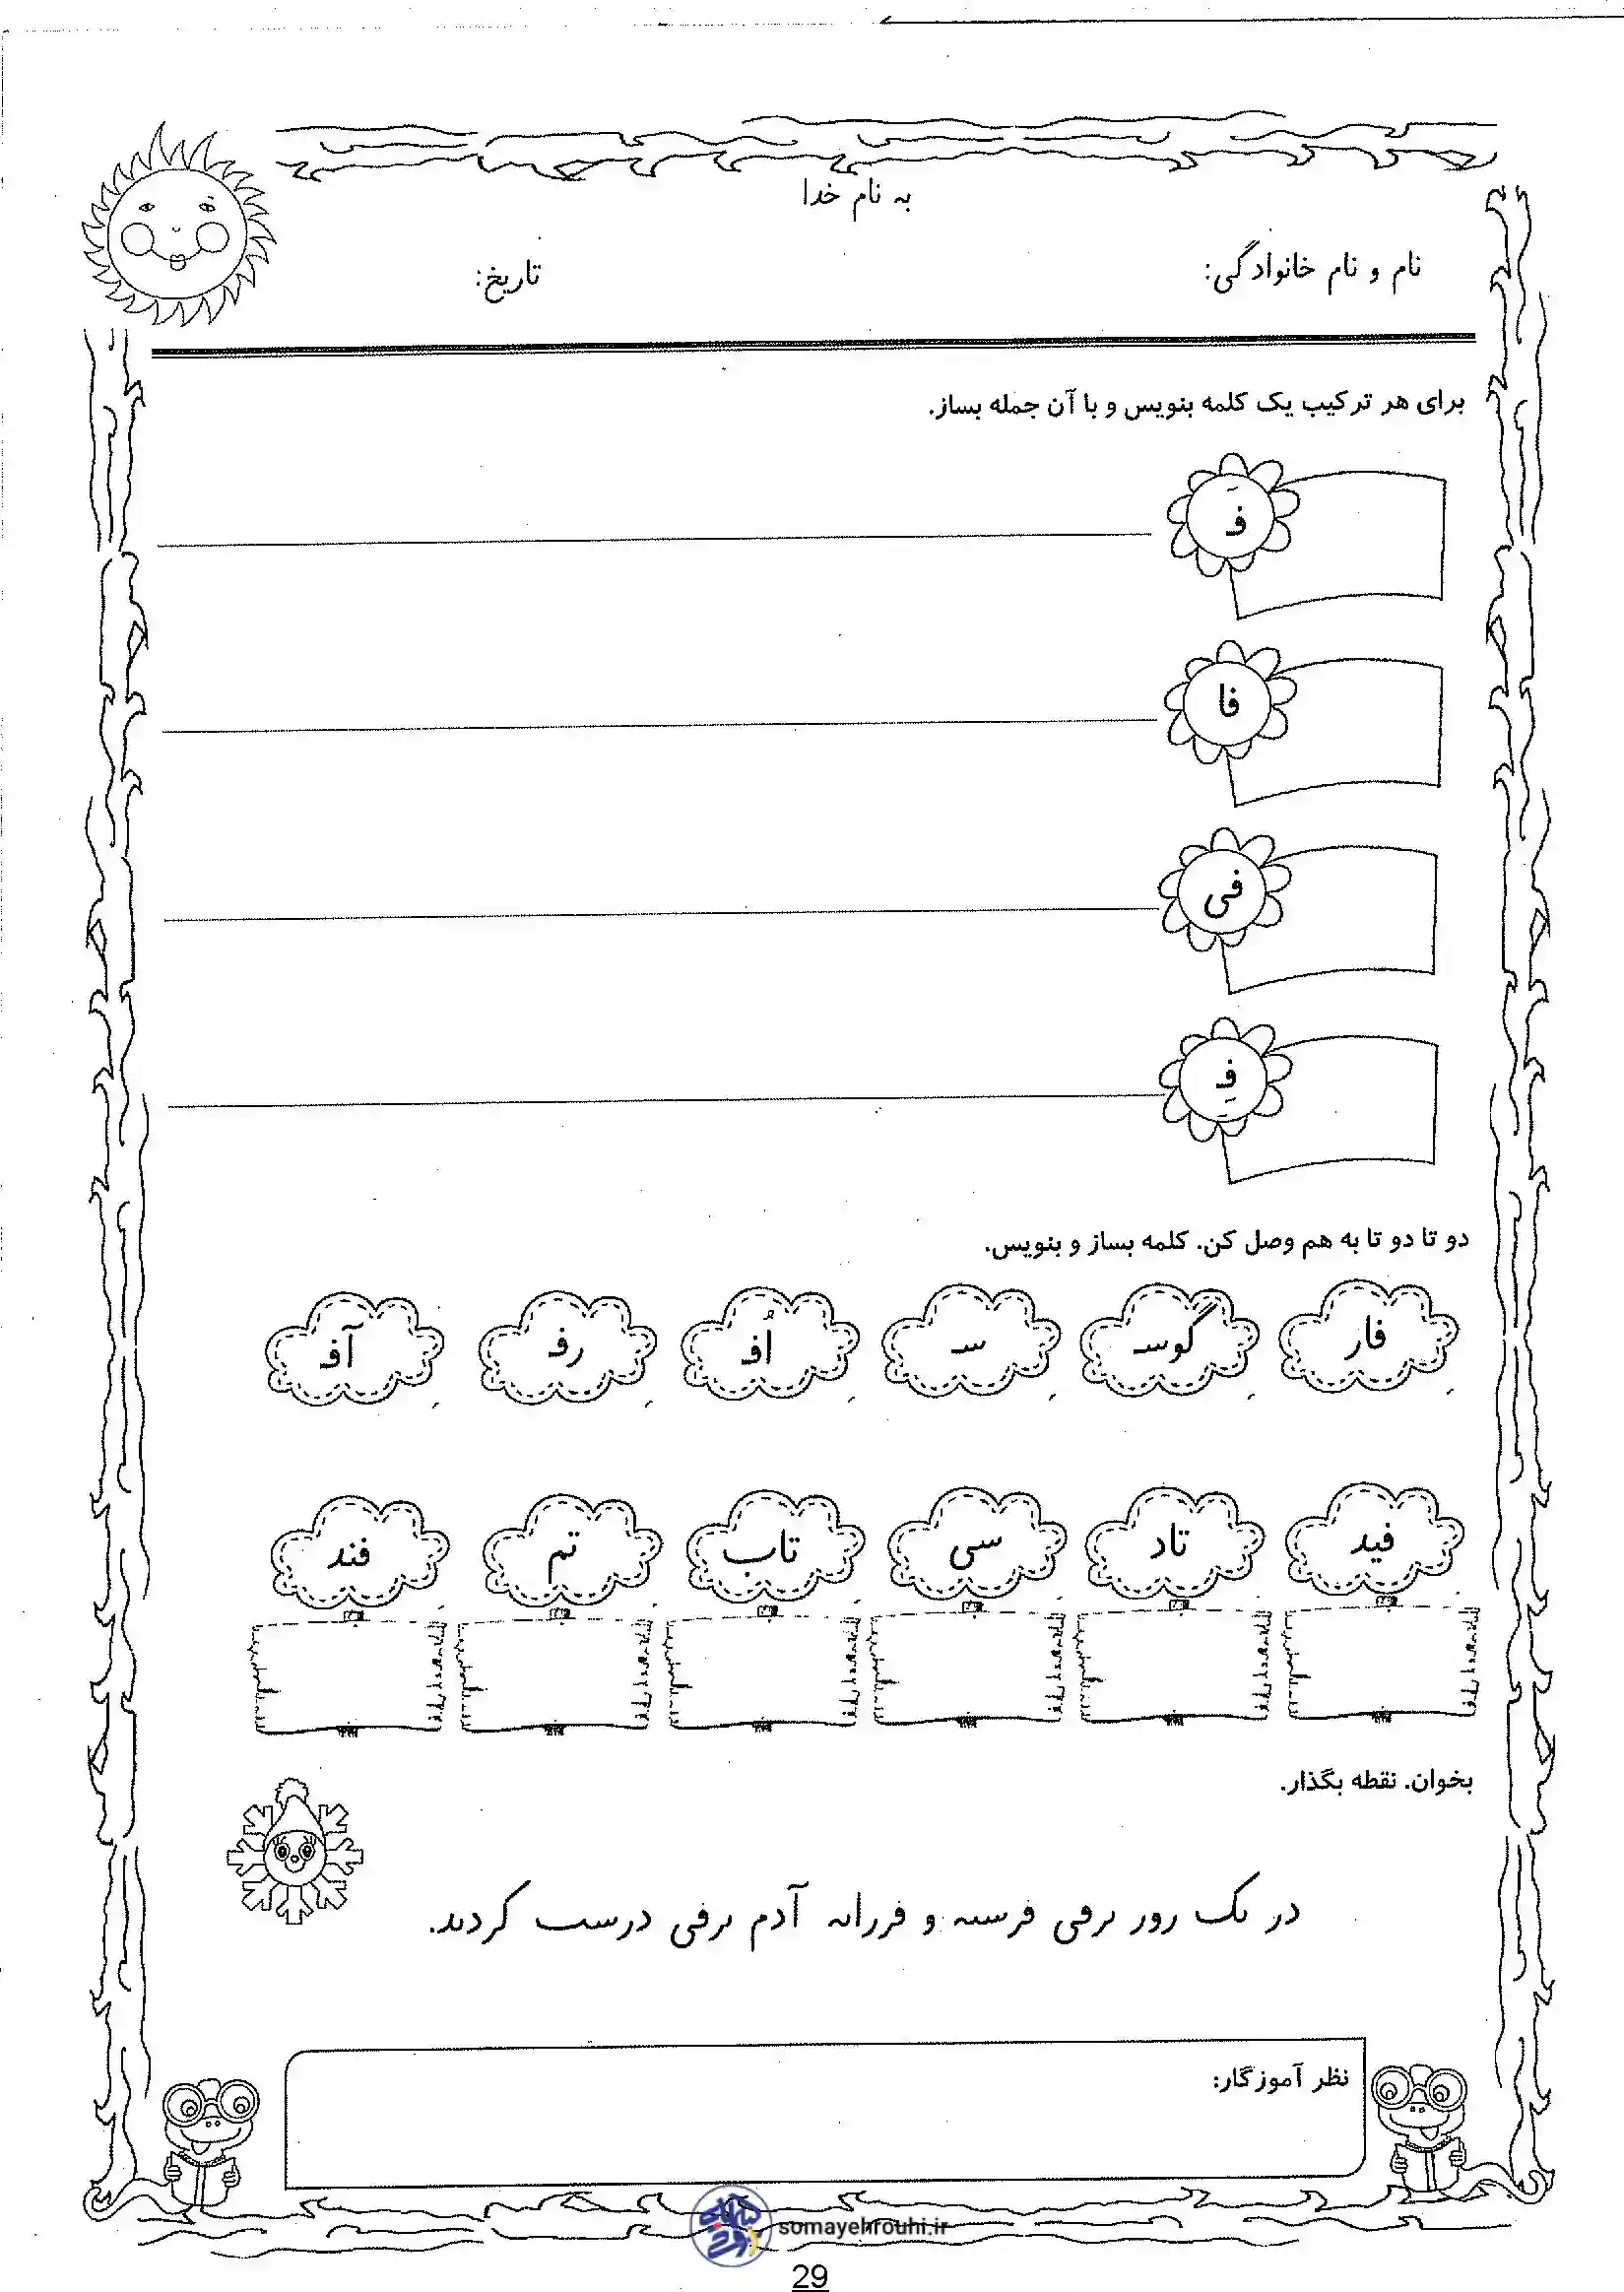 به نام خدا
نام و نام خانوادگی:
تاریخ:
برای هر ترکیب یک کلمه بنویس و با آن جمله بساز.
فَـ
فا
فی
فِـ
دو تا دو تا به هم وصل کن. کلمه بساز و بنویس.
فار گوسـ سـ اُفـ رفـ آفـ
فید تاد سی تاب تم فند
بخوان. نقطه بگذار.
در ٮک رور ٮرفی فرسٮه و فرراٮه آدم ٮرفی درست کردٮد.
نظر آموزگار:
somayehrouhi.ir
29